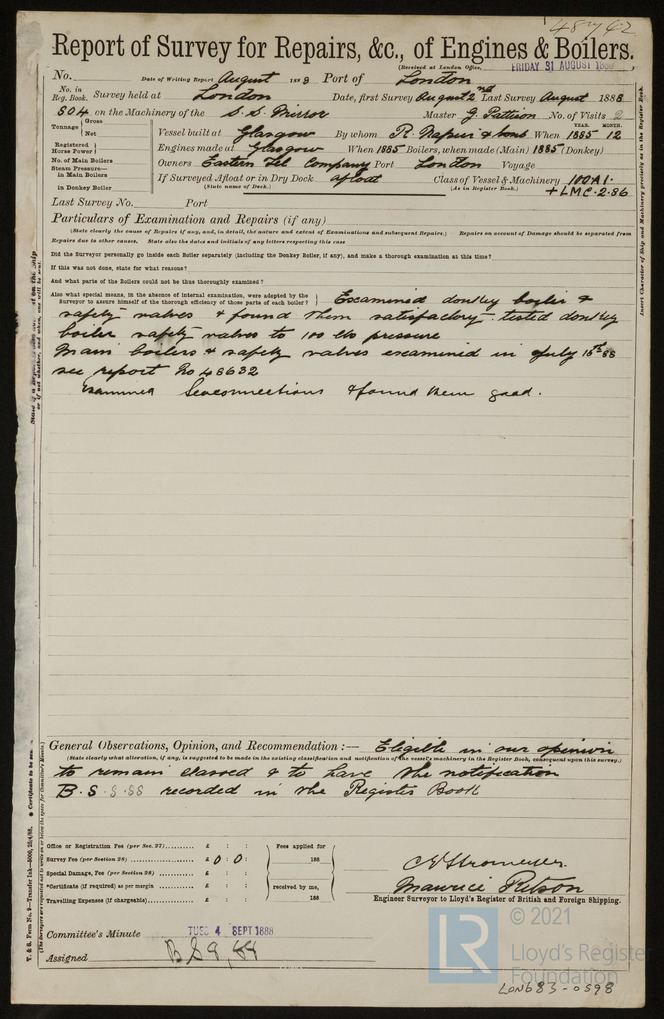 48742
Report of Survey for Repairs, &c., of Engines & Boilers.
(Received at London Office, FRIDAY 31 AUGUST 1888
No. Date of Writing Report August 1888 Port of London
No. in Reg. Book. Survey held at London Date, first Survey August 2nd Last Survey August 1888
504 on the Machinery of the S.S. Mirror Master G. Pattison No. of Visits 2
Tonnage Gross Net
YEAR. MONTH.
Vessel built at Glasgow By whom R. Napier & Sons When 1885 12
Registered Horse Power
Engines made at Glasgow When 1885 Boilers, when made (Main) 1885 (Donkey)
No. of Main Boilers
Owners Eastern Tel Company Port London Voyage
Steam Pressure— in Main Boilers
in Donkey Boiler
If Surveyed Afloat or in Dry Dock afloat Class of Vessel & Machinery 100A1.
(State name of Dock.) (As in Register Book.) + LMC.2.86
Last Survey No. Port
Particulars of Examination and Repairs (if any)
(State clearly the cause of Repairs if any, and, in detail, the nature and extent of Examinations and subsequent Repairs.) Repairs on account of Damage should be separated from
Repairs due to other causes. State also the dates and initials of any letters respecting this case
Did the Surveyor personally go inside each Boiler separately (including the Donkey Boiler, if any), and make a thorough examination at this time?
If this was not done, state for what reasons?
And what parts of the Boilers could not be thus thoroughly examined?
Also what special means, in the absence of internal examination, were adopted by the
Surveyor to assure himself of the thorough efficiency of those parts of each boiler?
Examined donkey boiler &
safety valves & found them satisfactory tested donkey
boiler safety valves to 100 lbs pressure
Main boilers & safety valves examined in July 16th 88
see report No 48632
Examined Seaconnections & found them good.
General Observations, Opinion, and Recommendation :— Eligible in our opinion
(State clearly what alteration, if any, is suggested to be made in the existing classification and notification of the vessel's machinery in the Register Book, consequent upon this survey.)
to remain classed & to have the notification
B.S 8.88 recorded in the Register Book
Office or Registration Fee (per Sec. 27).......... £ : :
Survey Fee (per Section 28) .......... £ 0 : 0 :
Special Damage, Fee (per Section 28) .......... £ : :
*Certificate (if required) as per margin .......... £ : :
Travelling Expenses (if chargeable).......... £ : :
Fees applied for
188
received by me,
188
C E Stromeyer.
Maurice Ritson
Engineer Surveyor to Lloyd's Register of British and Foreign Shipping.
Committee's Minute TUES 4 SEPT 1888
Assigned
LON683-0598
© 2021
LR
Lloyd's Register
Foundation
Insert Character of Ship and Machinery precisely as in the Register Book.